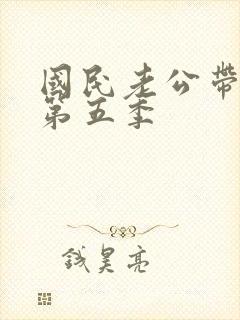 國民老公帶
第五季
錢昊亮